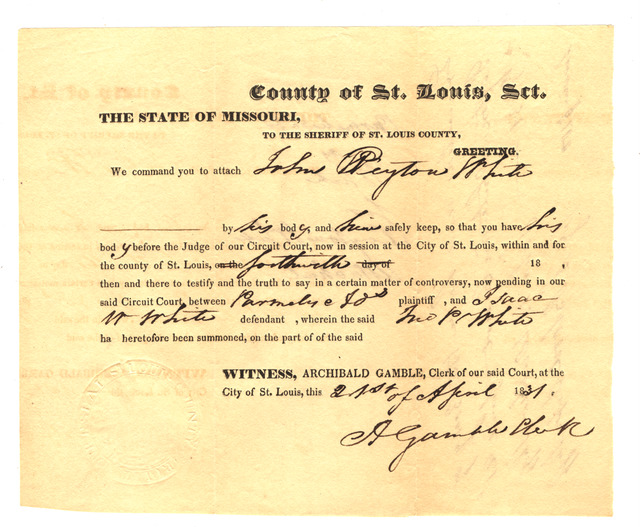 County of St. Louis, Sct.
THE STATE OF MISSOURI,
TO THE SHERIFF OF ST. LOUIS COUNTY,
GREETING.
We command you to attach John Peyton White
by his body; and him safely keep, so that you have his
body before the Judge of our Circuit Court, now in session at the City of St. Louis, within and for
the county of St. Louis, on the forthwith day of 18 ,
then and there to testify and the truth to say in a certain matter of controversy, now pending in our
said Circuit Court, between plaintiff , and Isaac
W White defendant , wherein the said Jno P. White
ha heretofore been summoned, on the part of of the said
WITNESS, ARCHIBALD GAMBLE, Clerk of our said Court, at the
City of St. Louis, this 21st of April 1831.
A Gamble Clerk